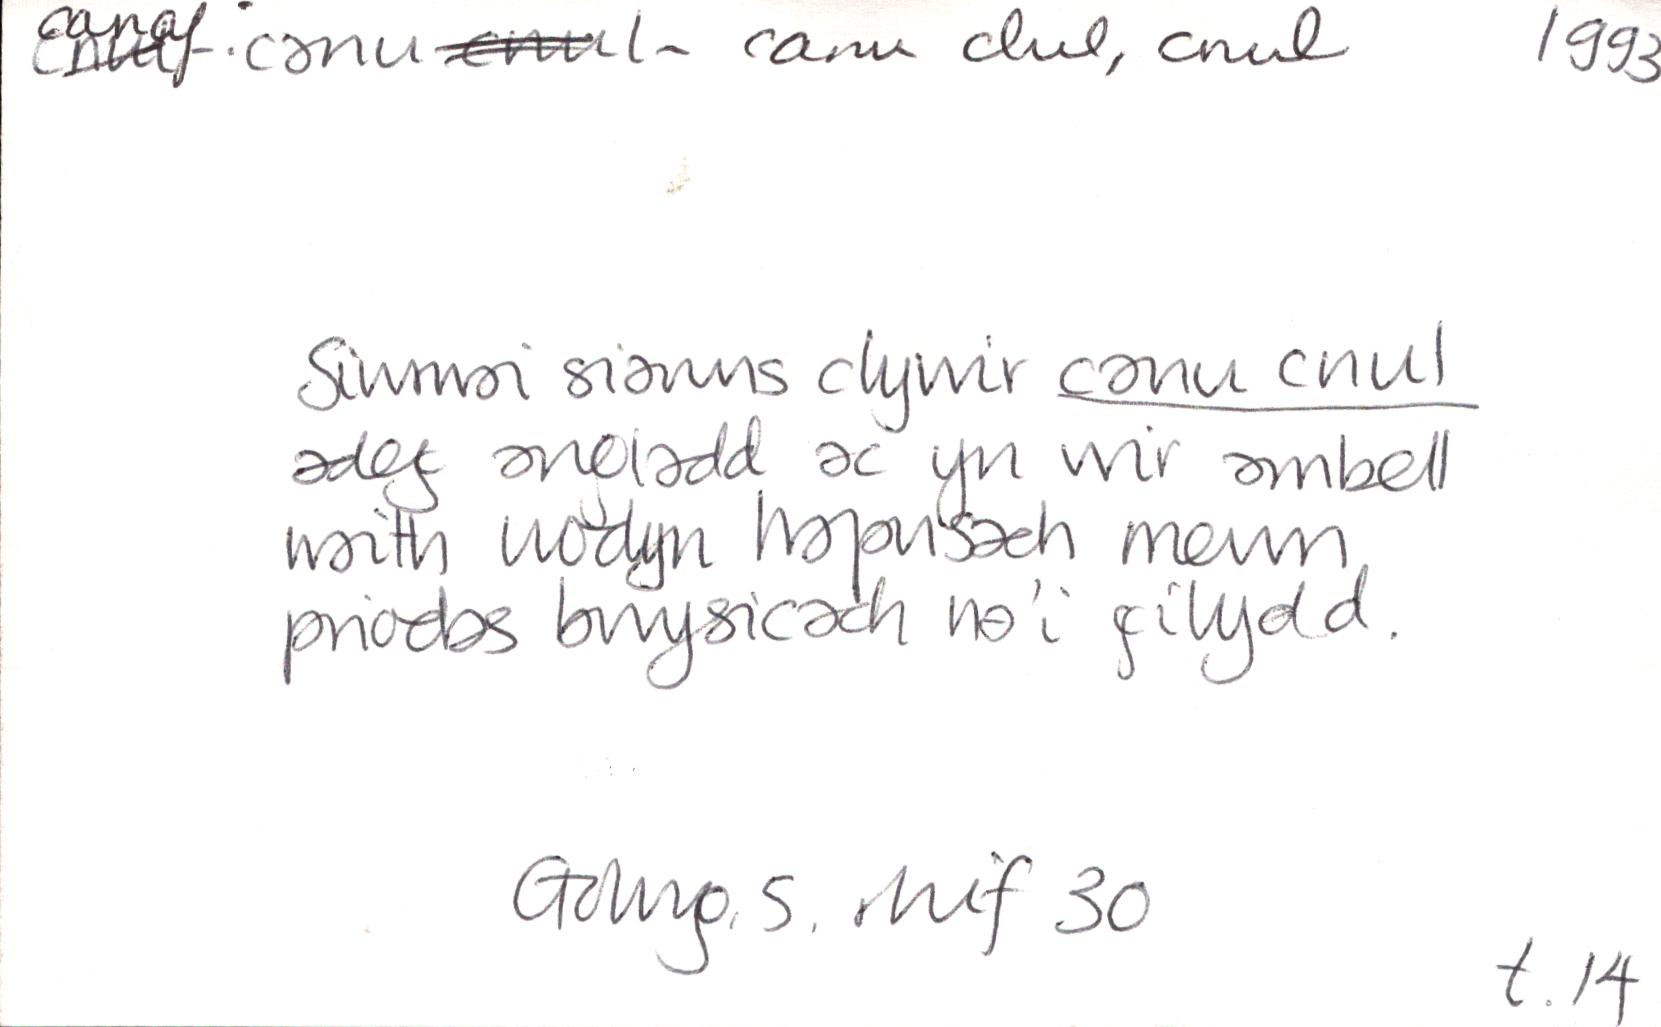 canaf: canu cnul - canu clul, cnul 1993
Simnai siawns clywir canu cnul
adeg angladd ac yn wir ambell
waith nodyn hapusach mewn
priodas bwysicach na'i gilydd.
Golwg. 5. rhif 30
t. 14